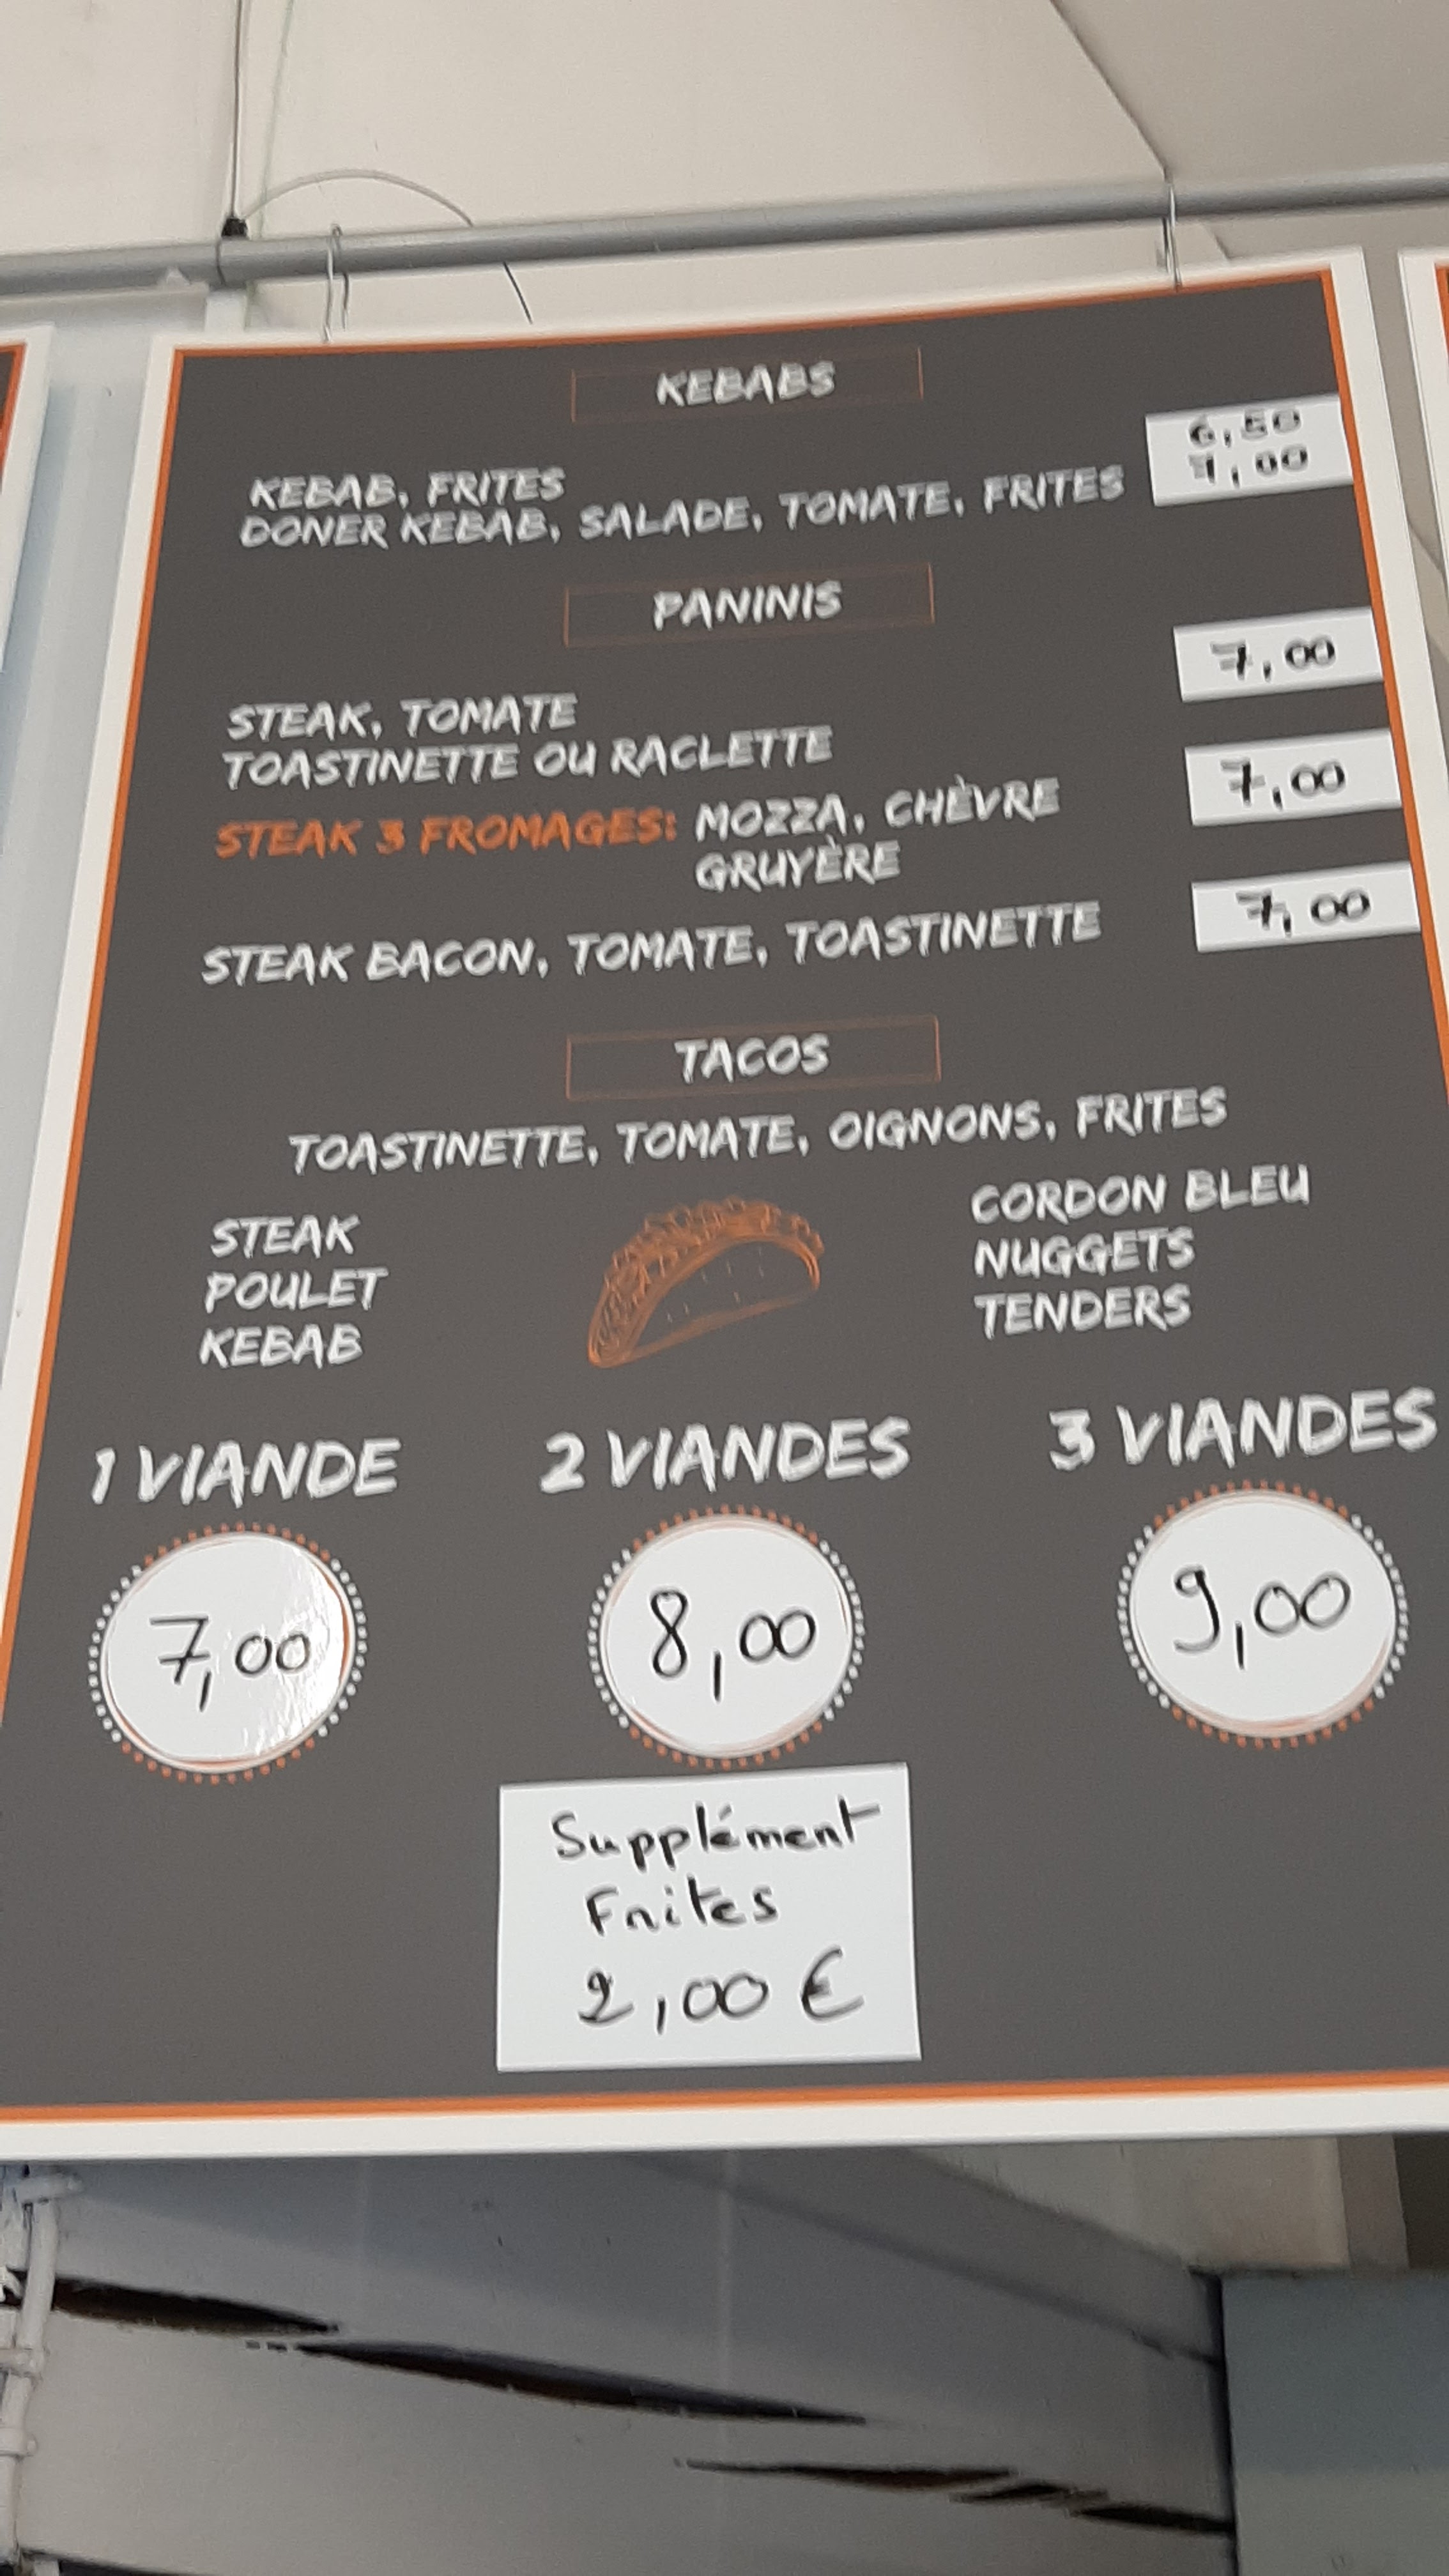 KEBABS
KEBAB, FRITES 6,50
DONER KEBAB, SALADE, TOMATE, FRITES 7,00
PANINIS
STEAK, TOMATE 7,00
TOASTINETTE OU RACLETTE
STEAK 3 FROMAGES: MOZZA, CHÈVRE 7,00
GRUYÈRE
STEAK BACON, TOMATE, TOASTINETTE 7,00
TACOS
TOASTINETTE, TOMATE, OIGNONS, FRITES
STEAK
POULET
KEBAB
CORDON BLEU
NUGGETS
TENDERS
1 VIANDE
7,00
2 VIANDES
8,00
3 VIANDES
9,00
Supplément
Frites
2,00 €